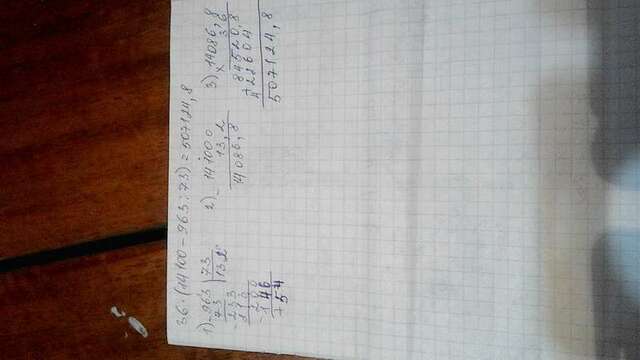 36·(14100-963:73)=507124,8
1) -963|73
73 |13,2
-233
219
-140
146
754
2) -14100
13,2
14086,8
3) 14086,8
× 36
84520,8
422604
507124,8